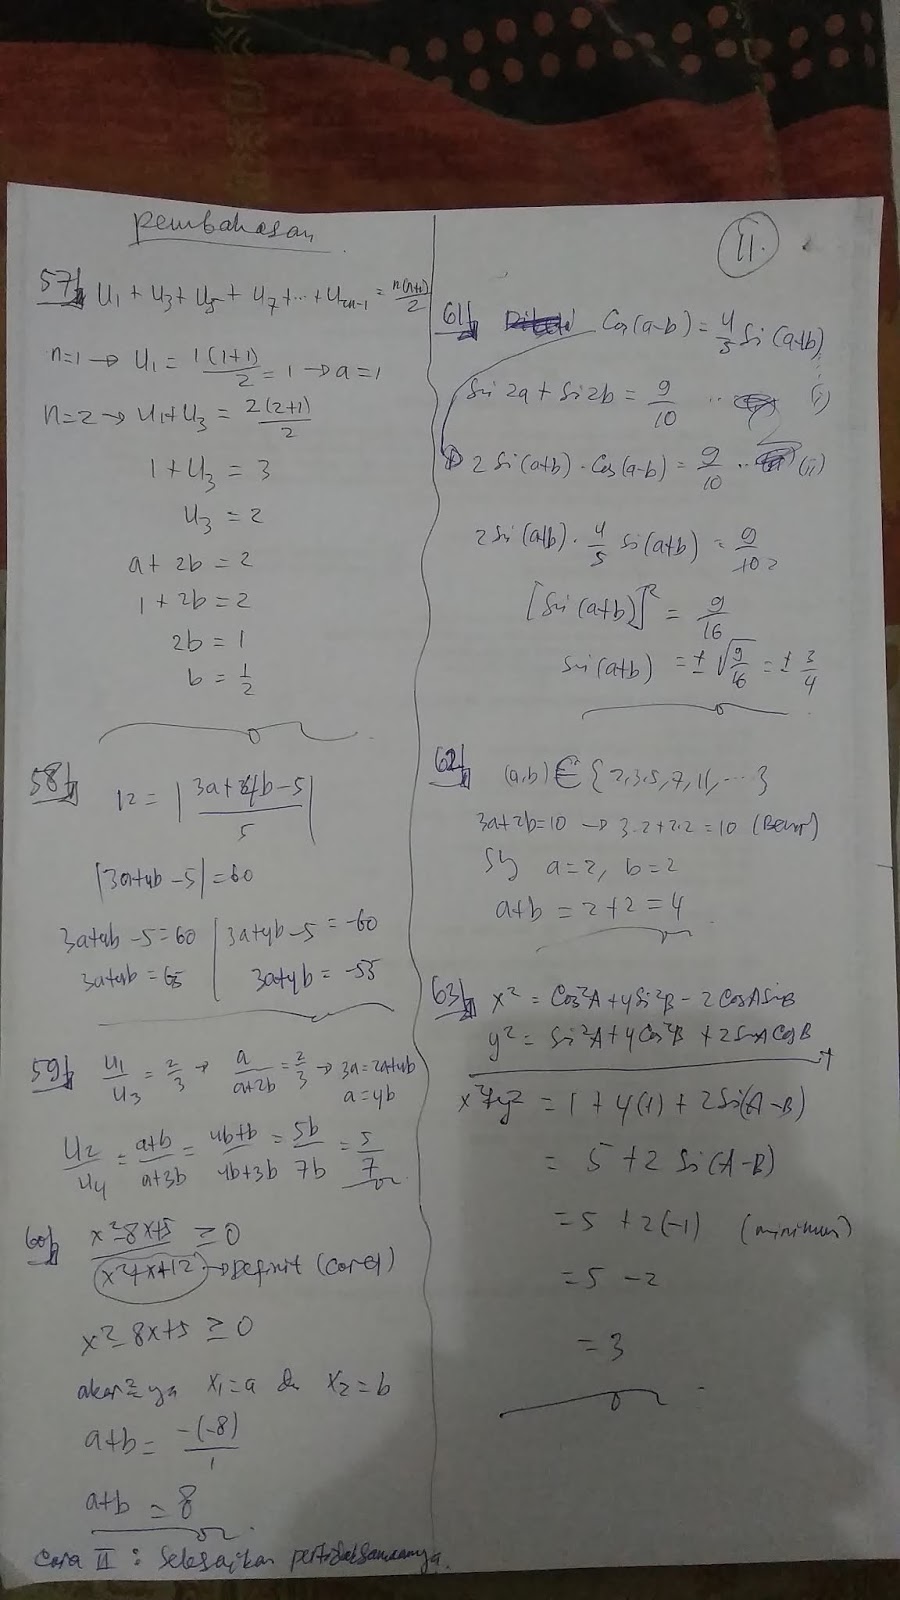 Pembahasan
57. U₁ + U₃ + U₅ + U₇ + ... + U₂ₙ₋₁ = n(n+1)/2
n=1 → U₁ = 1(1+1)/2 = 1 → a=1
n=2 → U₁+U₃ = 2(2+1)/2
1 + U₃ = 3
U₃ = 2
a + 2b = 2
1 + 2b = 2
2b = 1
b = 1/2
58. 12 = |(3a+4b-5)/5|
|3a+4b-5| = 60
3a+4b-5 = 60 | 3a+4b-5 = -60
3a+4b = 65 | 3a+4b = -55
59. U₁/U₃ = 2/3 → a/(a+2b) = 2/3 → 3a = 2a+4b
a = 4b
U₂/U₄ = (a+b)/(a+3b) = (4b+b)/(4b+3b) = 5b/7b = 5/7
60. (x²-8x+5)/(x²+x+12) ≥ 0
→ Definit (coret)
x²-8x+5 ≥ 0
akar²ya x₁=a dn x₂=b
a+b = -(-8)/1
a+b = 8
Cara II : Selesaikan pertidaksamaannya.
II.
61. Cos(a-b) = 4/5 Sin(a+b) ... (i)
Sin 2a + Sin 2b = 9/10
2 Sin(a+b) . Cos(a-b) = 9/10 ... (ii)
2 Sin(a+b) . 4/5 Sin(a+b) = 9/10
[Sin(a+b)]² = 9/16
Sin(a+b) = ± √(9/16) = ± 3/4
62. (a,b) ∈ {2,3,5,7,11, ...}
3a+2b=10 → 3.2+2.2=10 (Benar)
Shg a=2, b=2
a+b = 2+2 = 4
63. x² = Cos²A + 4Sin²B - 2CosASinB
y² = Sin²A + 4Cos²B + 2SinACosB
+
x²+y² = 1 + 4(1) + 2Sin(A-B)
= 5 + 2 Sin(A-B)
= 5 + 2(-1) (minimum)
= 5 - 2
= 3